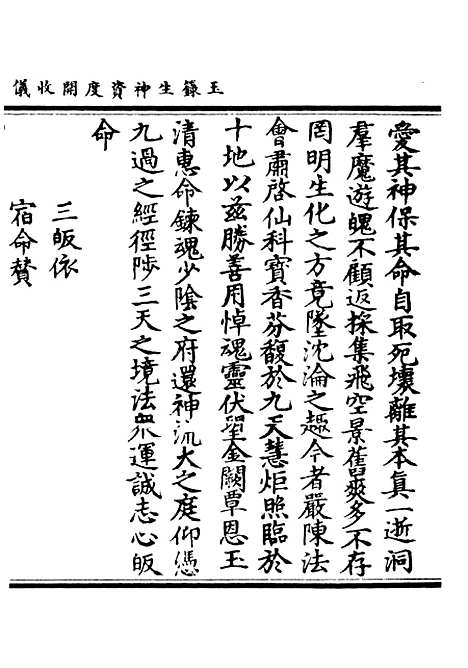 玉籙生神資度開收儀
愛其神保其命自取死壞離其本眞一逝洞
羣魔遊魄不顧返採集飛空景舊爽多不存
罔明生化之方竟墜沈淪之趣今者嚴陳法
會肅啓仙科寶香芬馥於九天慧炬照臨於
十地以茲勝善用悼魂靈伏望金闕覃恩玉
清惠命鍊魂少陰之府還神流火之庭仰憑
九過之經徑陟三天之境法眾運誠志心皈
命
三皈依
宿命贊